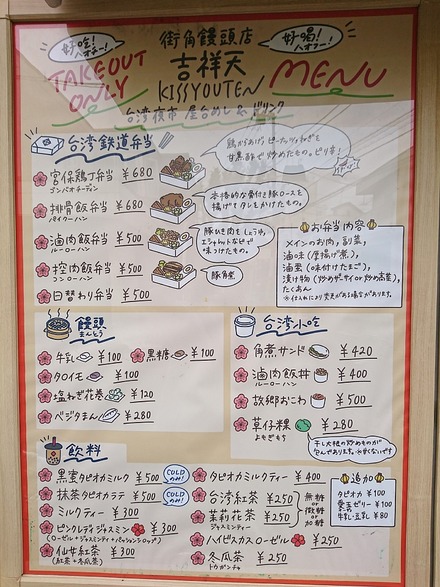 好吃!
ハオチー!
街角饅頭店
吉祥天
KISSYOUTEN
好喝!
ハオフー!
TAKEOUT
ONLY
MENU
台湾夜市 屋台めし & ドリンク
台湾鉄道弁当
宮保鶏丁弁当 ¥680
コンパオチーディン
排骨飯弁当 ¥680
パイクーハン
滷肉飯弁当 ¥500
ルーローハン
控肉飯弁当 ¥500
コンローハン
日替わり弁当 ¥500
鶏からあげ、ピーナッツ、ねぎを
甘黒酢で炒めたもの。ピリ辛!
本格的な骨付き豚ロースを
揚げてタレをかけたもの。
豚ひき肉をしょうゆ、
エシャロットなどで
味つけたもの。
豚角煮
お弁当内容
メインのお肉、副菜、
滷味(厚揚げ煮)、
滷蛋(味付けたまご)、
漬け物(炒めザーサイor炒め高菜)、
たくあん
※仕入れにより変更がある場合があります。
饅頭
まんとう
牛乳 ¥100 黒糖 ¥100
タロイモ ¥100
塩ねぎ花巻 ¥120
ベジタまん ¥280
台湾小吃
角煮サンド ¥420
滷肉飯丼 ¥400
ルーローハン
故郷おこわ ¥500
草仔粿 ¥280
よもぎもち
干し大根の炒めものが
包んであります。※甘くないです
飲料
黒蜜タピオカミルク ¥500 COLDのみ!
抹茶タピオカラテ ¥500 COLDのみ!
ミルクティー ¥300
ピンクレディジャスミン ¥300
(ローゼル+ジャスミンティ+パッションシロップ)
仙女紅茶 ¥300
(紅茶+冬瓜茶)
タピオカミルクティー ¥400
台湾紅茶 ¥250
茉莉花茶 ¥250
ジャスミンティー
無糖
or
微糖
or
加糖
ハイビスカスローゼル ¥250
冬瓜茶 ¥250
トウガンチャ
追加
タピオカ ¥100
愛玉ゼリー ¥100
牛乳・豆乳 ¥80